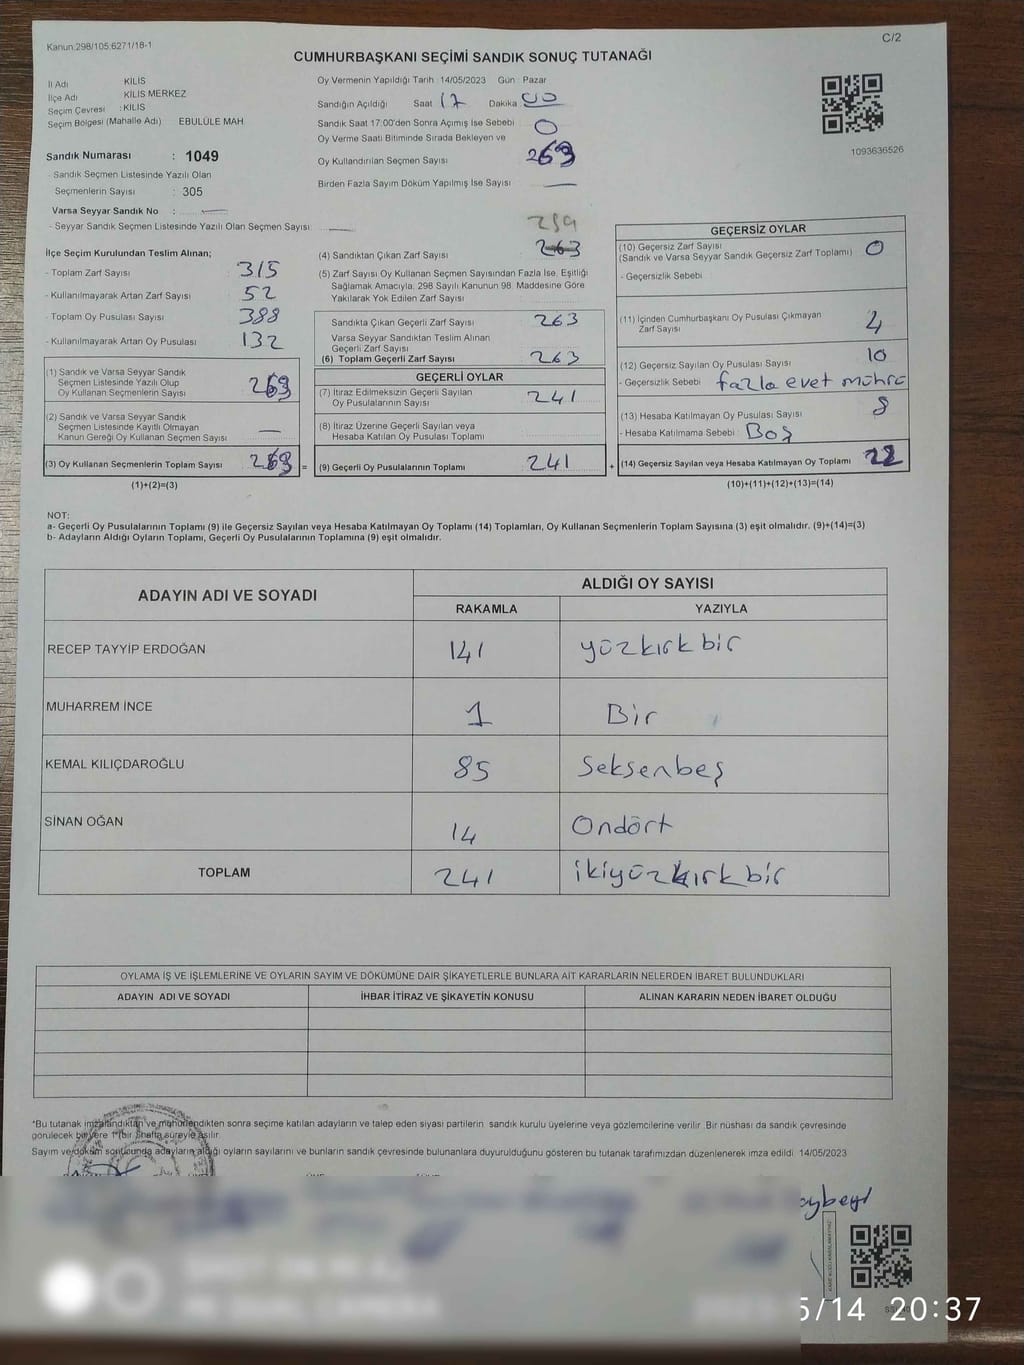 Kanun:298/105:6271/18-1
C/2
CUMHURBAŞKANI SEÇİMİ SANDIK SONUÇ TUTANAĞI
İl Adı KİLİS
İlçe Adı KİLİS MERKEZ
Seçim Çevresi : KİLİS
Seçim Bölgesi (Mahalle Adı) EBULÜLE MAH
Oy Vermenin Yapıldığı Tarih 14/05/2023 Gün Pazar
Sandığın Açıldığı Saat 17 Dakika 00
Sandık Saat 17:00'den Sonra Açımış İse Sebebi 0
Oy Verme Saati Bitiminde Sırada Bekleyen ve
Oy Kullandırılan Seçmen Sayısı
Birden Fazla Sayım Döküm Yapılmış İse Sayısı —
1093636526
Sandık Numarası : 1049
- Sandık Seçmen Listesinde Yazılı Olan
Seçmenlerin Sayısı : 305
Varsa Seyyar Sandık No : —
- Seyyar Sandık Seçmen Listesinde Yazılı Olan Seçmen Sayısı: —
İlçe Seçim Kurulundan Teslim Alınan;
- Toplam Zarf Sayısı 315
- Kullanılmayarak Artan Zarf Sayısı 52
- Toplam Oy Pusulası Sayısı 388
- Kullanılmayarak Artan Oy Pusulası 132
(1) Sandık ve Varsa Seyyar Sandık
Seçmen Listesinde Yazılı Olup
Oy Kullanan Seçmenlerin Sayısı
(2) Sandık ve Varsa Seyyar Sandık
Seçmen Listesinde Kayıtlı Olmayan
Kanun Gereği Oy Kullanan Seçmen Sayısı —
(3) Oy Kullanan Seçmenlerin Toplam Sayısı
(1)+(2)=(3)
(4) Sandıktan Çıkan Zarf Sayısı 263
(5) Zarf Sayısı Oy Kullanan Seçmen Sayısından Fazla İse, Eşitliği
Sağlamak Amacıyla, 298 Sayılı Kanunun 98. Maddesine Göre
Yakılarak Yok Edilen Zarf Sayısı
Sandıkta Çıkan Geçerli Zarf Sayısı 263
Varsa Seyyar Sandıktan Teslim Alınan
Geçerli Zarf Sayısı
(6) Toplam Geçerli Zarf Sayısı 263
GEÇERLİ OYLAR
(7) İtiraz Edilmeksizin Geçerli Sayılan
Oy Pusulalarının Sayısı 241
(8) İtiraz Üzerine Geçerli Sayılan veya
Hesaba Katılan Oy Pusulası Toplamı
= (9) Geçerli Oy Pusulalarının Toplamı 241 +
GEÇERSİZ OYLAR
(10) Geçersiz Zarf Sayısı
(Sandık ve Varsa Seyyar Sandık Geçersiz Zarf Toplamı) 0
- Geçersizlik Sebebi
(11) İçinden Cumhurbaşkanı Oy Pusulası Çıkmayan
Zarf Sayısı 4
(12) Geçersiz Sayılan Oy Pusulası Sayısı 10
- Geçersizlik Sebebi fazla evet mühre
(13) Hesaba Katılmayan Oy Pusulası Sayısı 8
- Hesaba Katılmama Sebebi : Boş
(14) Geçersiz Sayılan veya Hesaba Katılmayan Oy Toplamı 22
(10)+(11)+(12)+(13)=(14)
NOT:
a- Geçerli Oy Pusulalarının Toplamı (9) ile Geçersiz Sayılan veya Hesaba Katılmayan Oy Toplamı (14) Toplamları, Oy Kullanan Seçmenlerin Toplam Sayısına (3) eşit olmalıdır. (9)+(14)=(3)
b- Adayların Aldığı Oyların Toplamı, Geçerli Oy Pusulalarının Toplamına (9) eşit olmalıdır.
ADAYIN ADI VE SOYADI
ALDIĞI OY SAYISI
RAKAMLA YAZIYLA
RECEP TAYYİP ERDOĞAN 141 yüzkırkbir
MUHARREM İNCE 1 Bir
KEMAL KILIÇDAROĞLU 85 Seksenbeş
SİNAN OĞAN 14 Ondört
TOPLAM 241 ikiyüzkırkbir
OYLAMA İŞ VE İŞLEMLERİNE VE OYLARIN SAYIM VE DÖKÜMÜNE DAİR ŞİKAYETLERLE BUNLARA AİT KARARLARIN NELERDEN İBARET BULUNDUKLARI
ADAYIN ADI VE SOYADI İHBAR İTİRAZ VE ŞİKAYETİN KONUSU ALINAN KARARIN NEDEN İBARET OLDUĞU
*Bu tutanak imzalandıktan ve mühürlendikten sonra seçime katılan adayların ve talep eden siyasi partilerin sandık kurulu üyelerine veya gözlemcilerine verilir. Bir nüshası da sandık çevresinde
görülecek bir yere 1 (bir) hafta süreyle asılır.
Sayım ve döküm sonucunda adayların aldığı oyların sayılarını ve bunların sandık çevresinde bulunanlara duyurulduğunu gösteren bu tutanak tarafımızdan düzenlenerek imza edildi. 14/05/2023
5/14 20:37